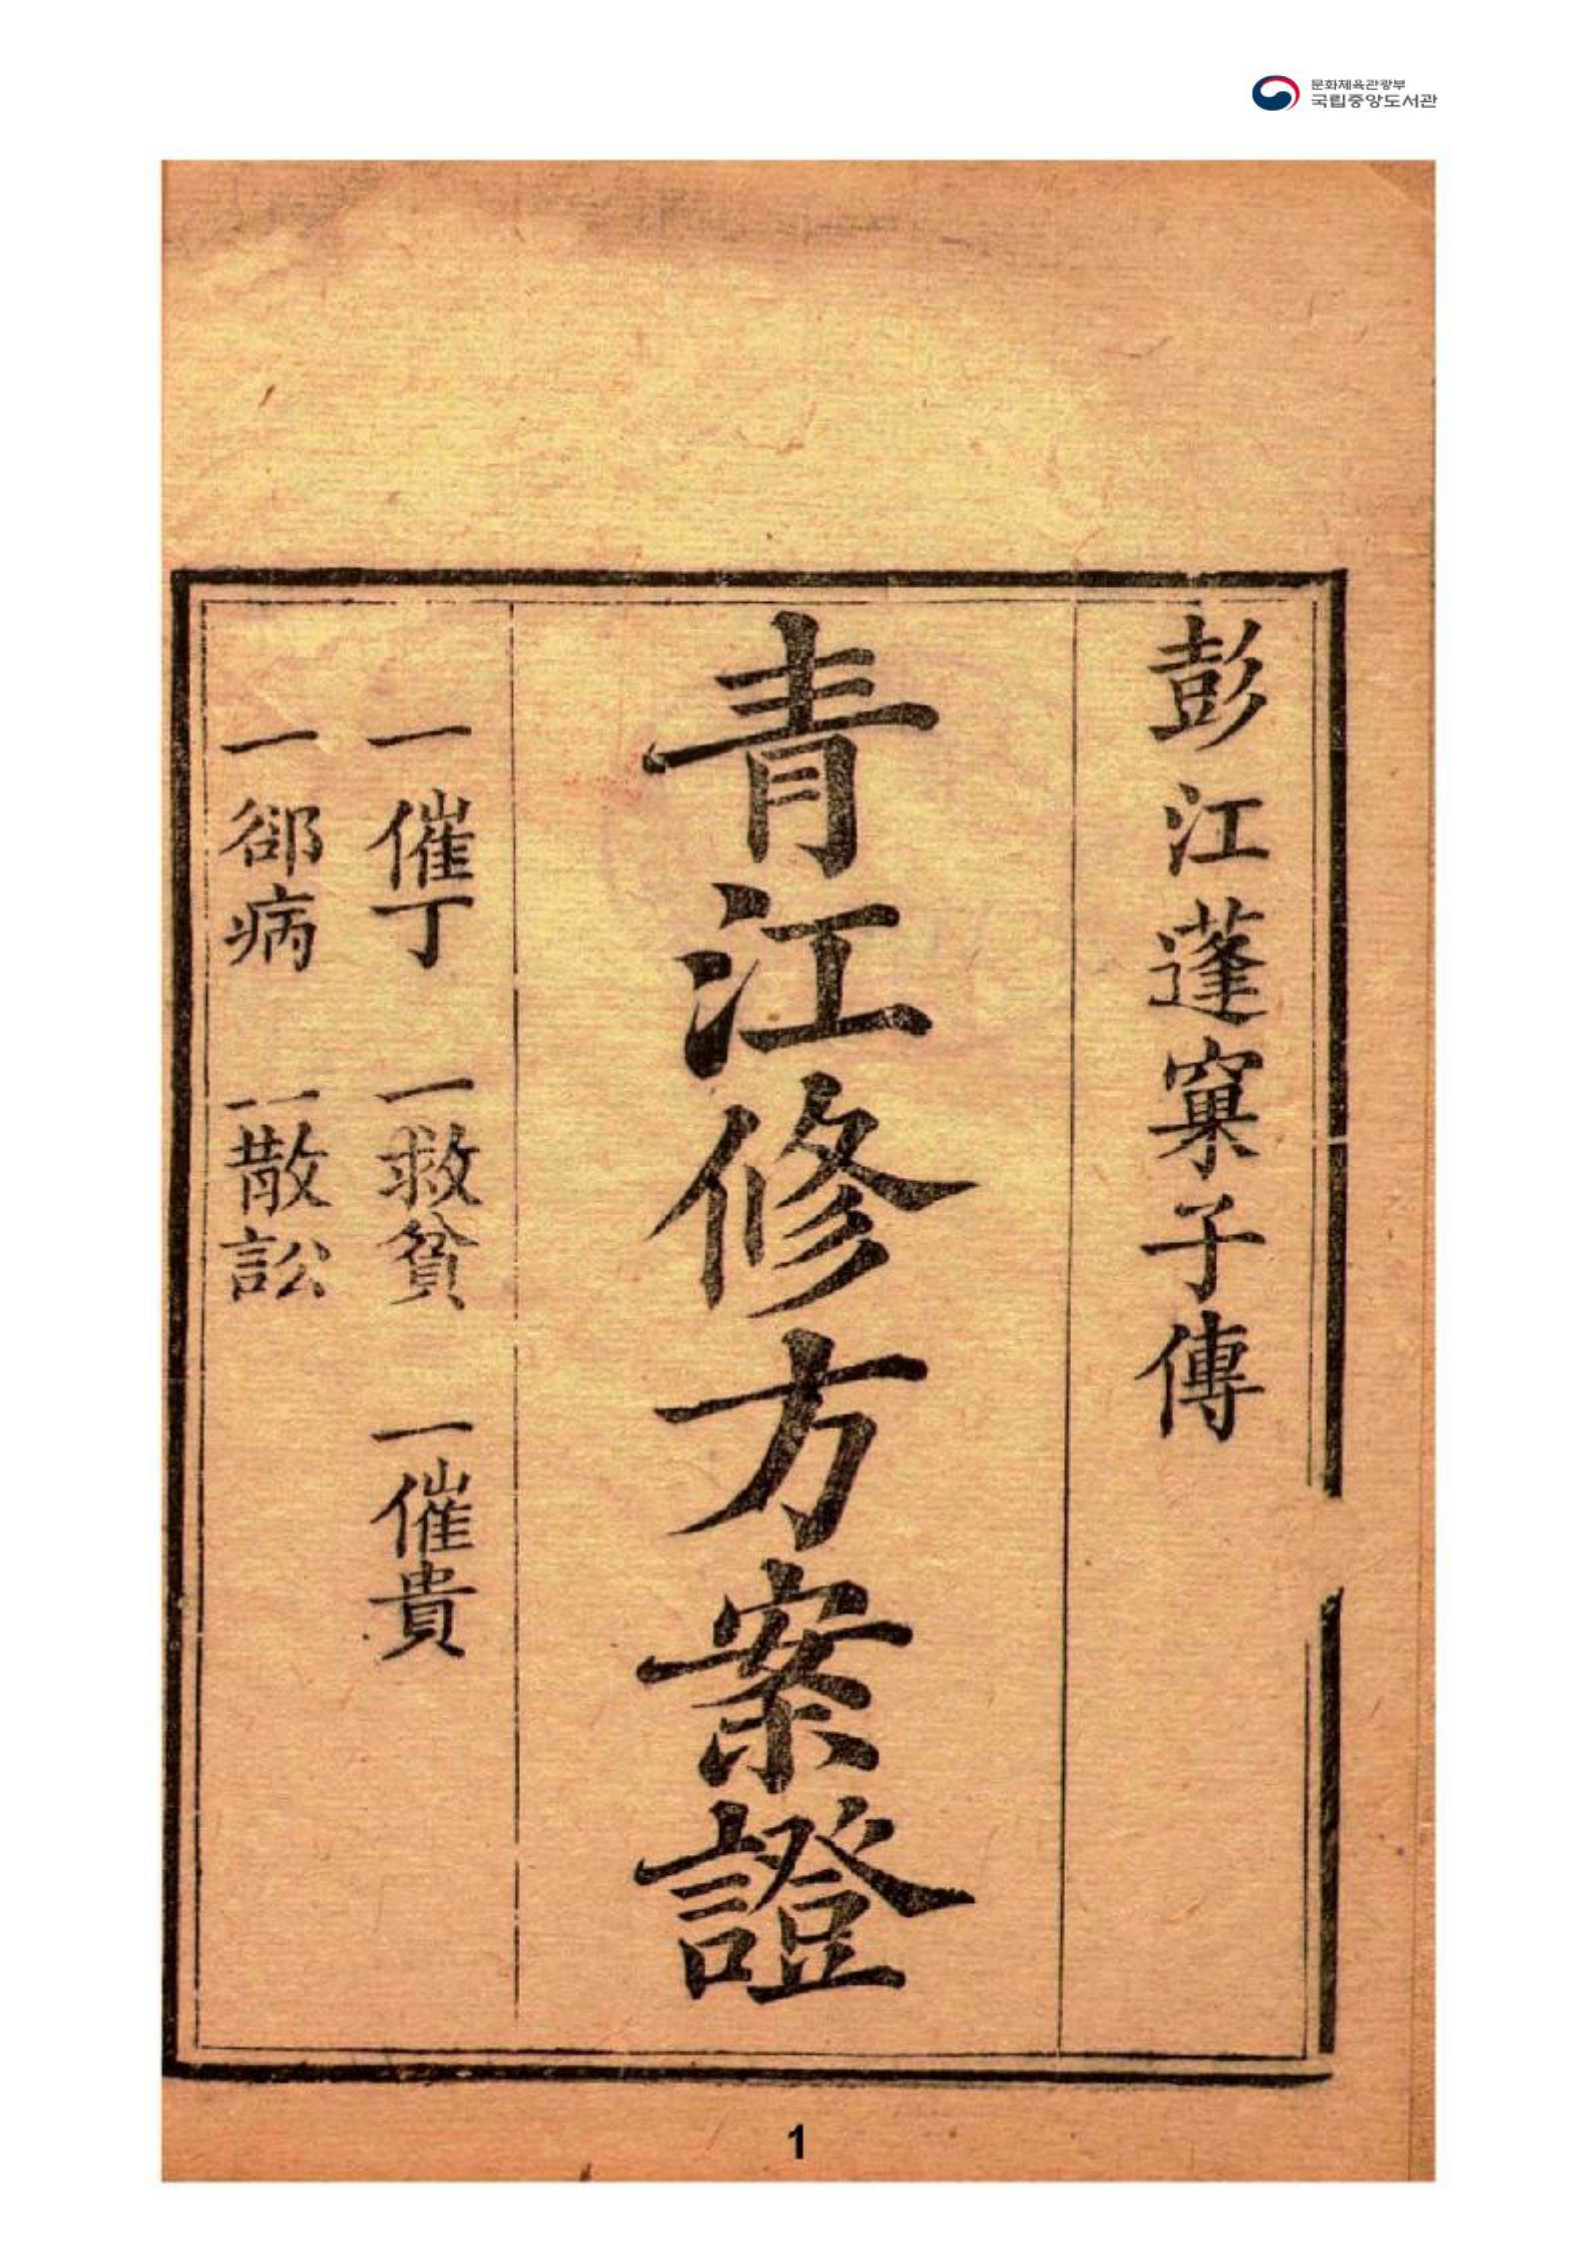 문화체육관광부
국립중앙도서관
彭江蓬窠子傳
青江修方案證
一催丁 一救貧 一催貴
一郤病 一散訟
1